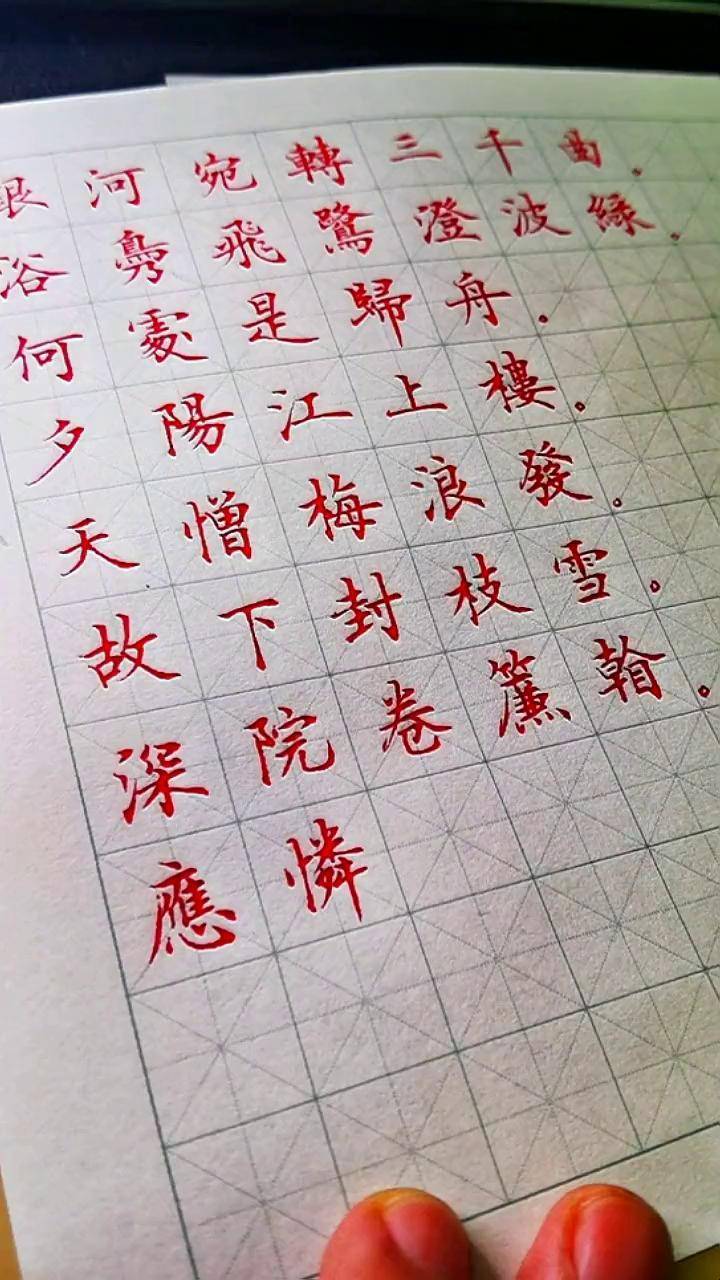 銀河宛轉三千曲。
浴鳧飛鷺澄波緑。
何處是歸舟。
夕陽江上樓。
天憎梅浪發。
故下封枝雪。
深院卷簾看。
應憐